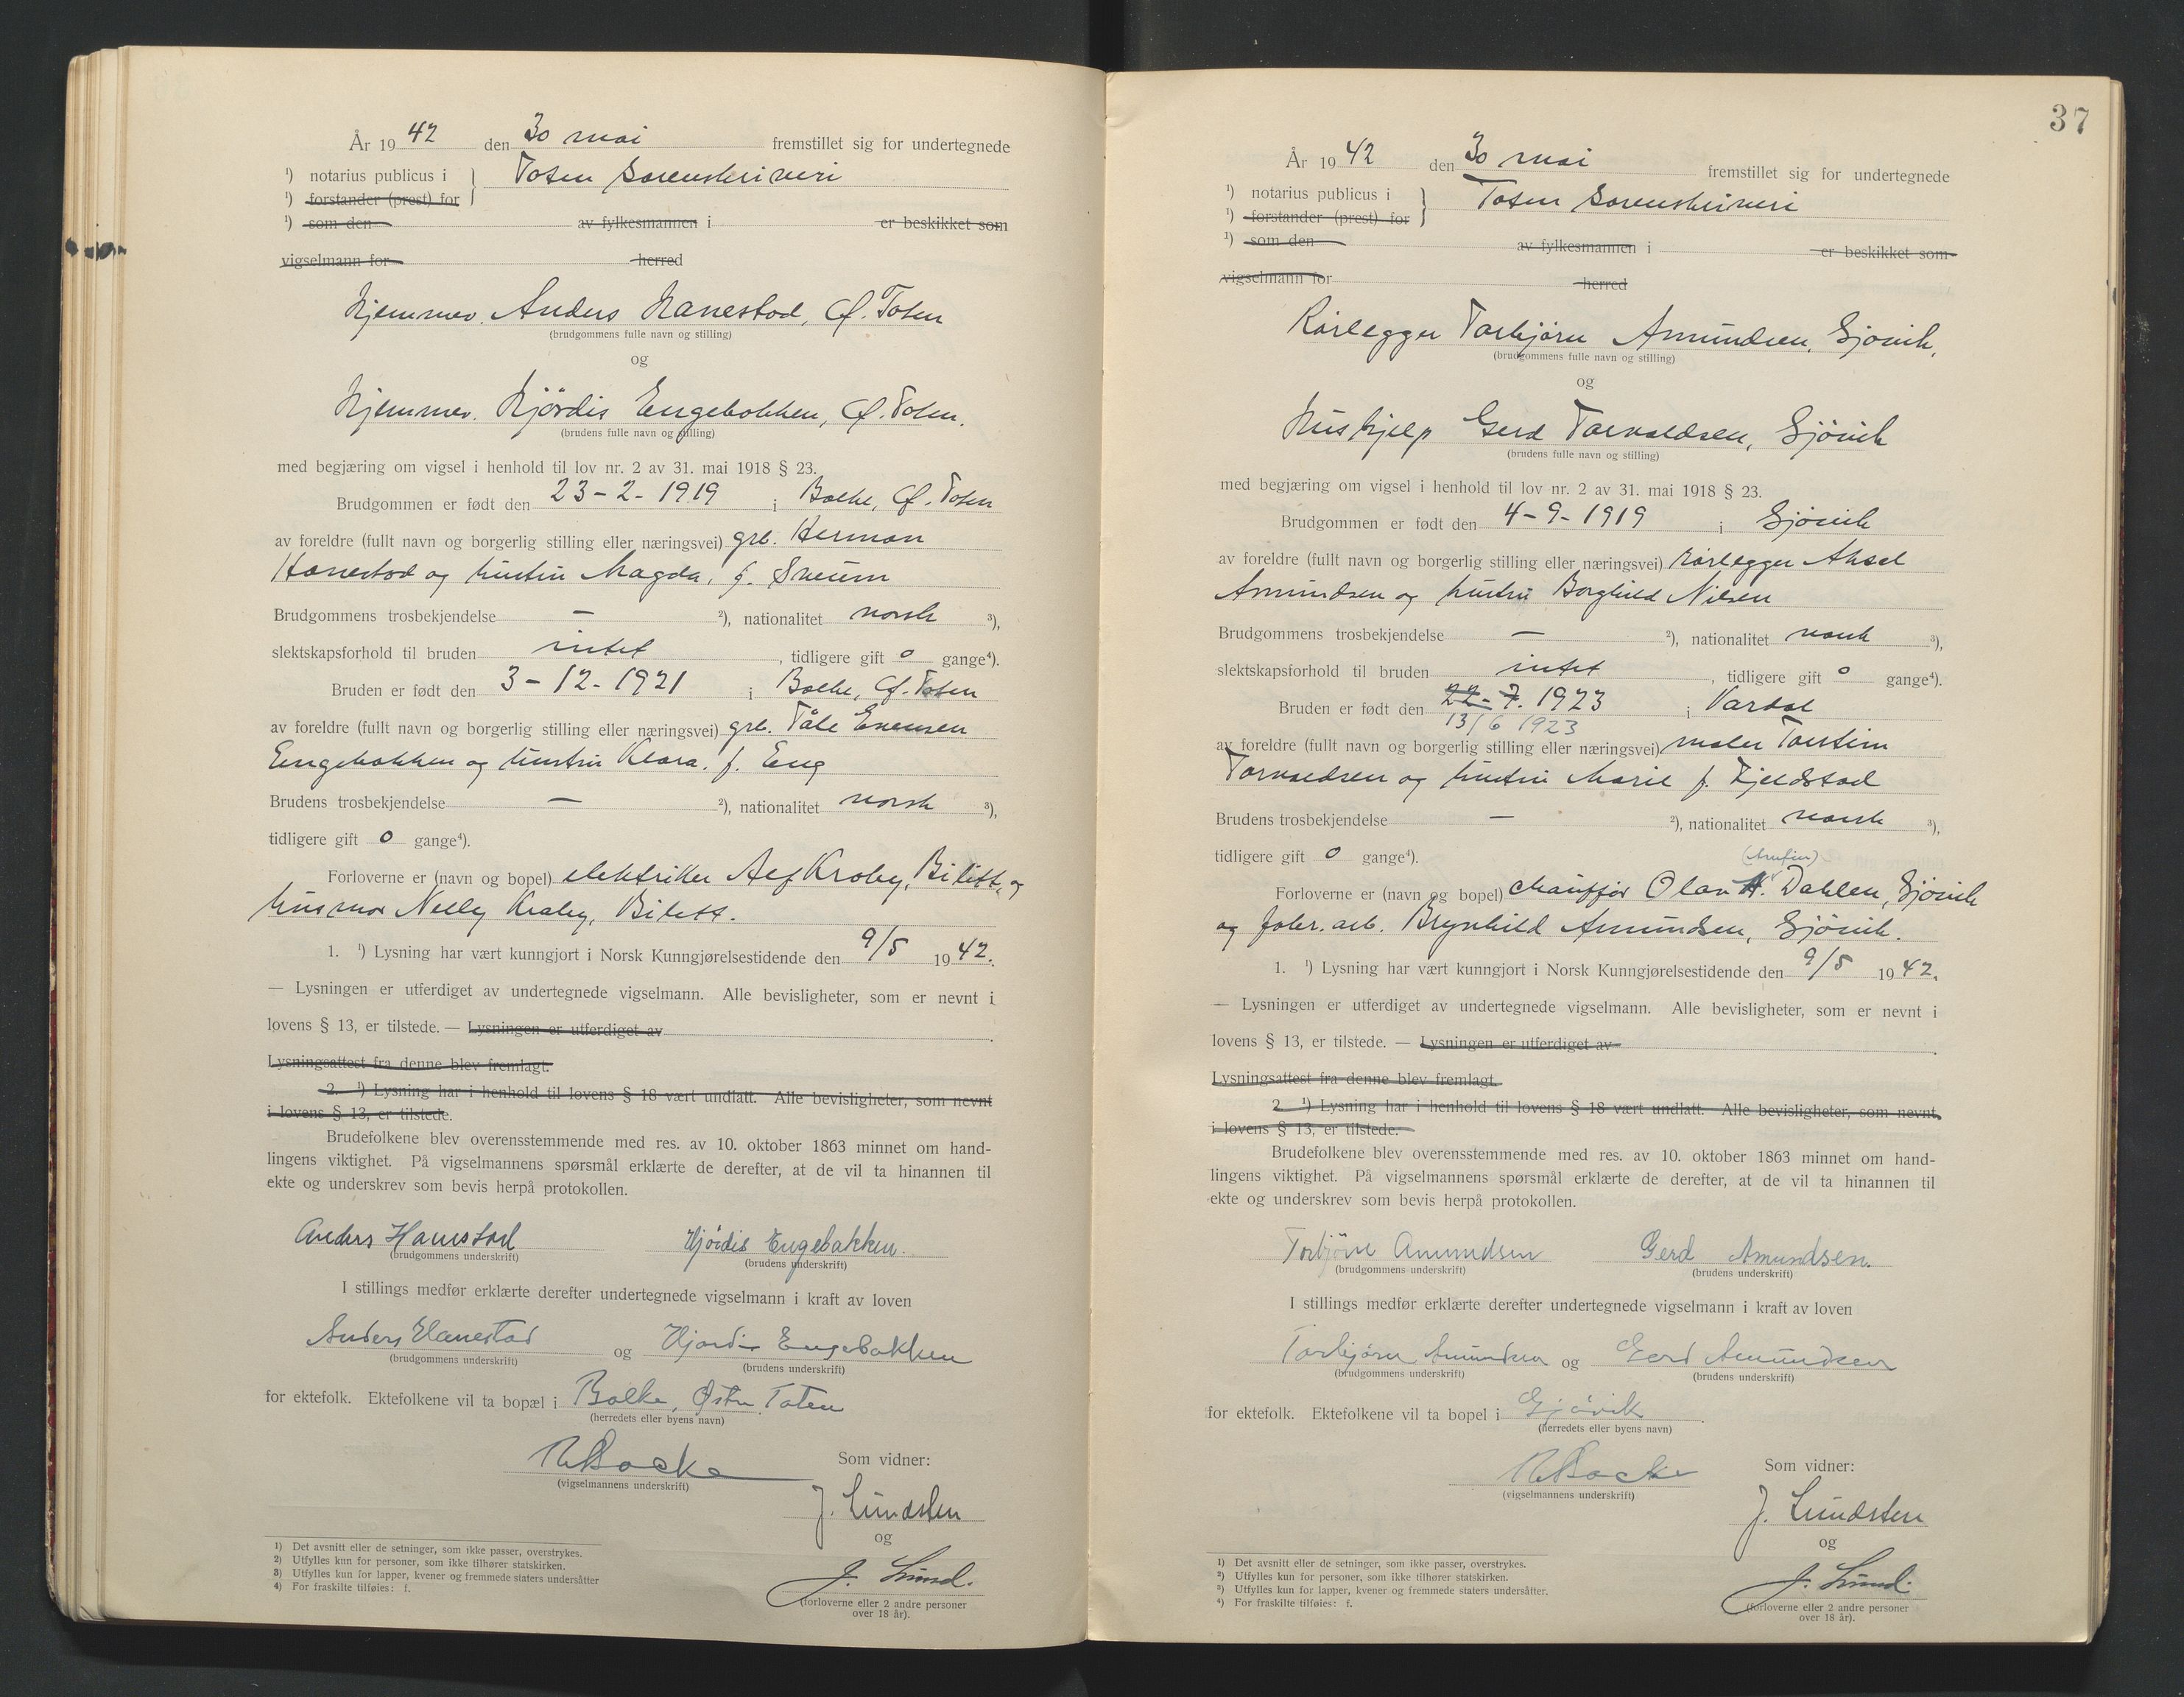 År 1942 den 30 mai fremstillet sig for undertegnede
¹) notarius publicus i } Toten Sorenskriveri
¹) forstander (prest) for
¹) som den av fylkesmannen i er beskikket som
vigselmann for herred
Hjemmev. Anders Hanestad, Ø. Toten
(brudgommens fulle navn og stilling)
og
Hjemmev. Hjördis Engebakken, Ø. Toten.
(brudens fulle navn og stilling)
med begjæring om vigsel i henhold til lov nr. 2 av 31. mai 1918 § 23.
Brudgommen er født den 23-2-1919 i Balke, Ø. Toten
av foreldre (fullt navn og borgerlig stilling eller næringsvei) grb. Herman
Hanestad og hustru Magda, f. Sneum
Brudgommens trosbekjendelse — ²), nationalitet norsk ³),
slektskapsforhold til bruden intet , tidligere gift 0 gange⁴).
Bruden er født den 3-12-1921 i Balke, Ø. Toten
av foreldre (fullt navn og borgerlig stilling eller næringsvei) grb. Påle Evensen
Engebakken og hustru Klara. f. Eng
Brudens trosbekjendelse — ²), nationalitet norsk ³),
tidligere gift 0 gange⁴).
Forloverne er (navn og bopel) elektriker Alf Kraby, Bilitt, og
husmor Nelly Kraby, Bilitt.
1. ¹) Lysning har vært kunngjort i Norsk Kunngjørelsestidende den 9/5 1942.
— Lysningen er utferdiget av undertegnede vigselmann. Alle bevisligheter, som er nevnt i
lovens § 13, er tilstede. — Lysningen er utferdiget av .
Lysningsattest fra denne blev fremlagt.
2. ¹) Lysning har i henhold til lovens § 18 vært undlatt. Alle bevisligheter, som nevnt
i lovens § 13, er tilstede.
Brudefolkene blev overensstemmende med res. av 10. oktober 1863 minnet om hand-
lingens viktighet. På vigselmannens spørsmål erklærte de derefter, at de vil ta hinannen til
ekte og underskrev som bevis herpå protokollen.
Anders Hanestad Hjördis Engebakken.
(brudgommens underskrift) (brudens underskrift)
I stillings medfør erklærte derefter undertegnede vigselmann i kraft av loven
Anders Hanestad og Hjørdis Engebakken
(brudgommens underskrift) (brudens underskrift)
for ektefolk. Ektefolkene vil ta bopæl i Balke, Østre Toten
(herredets eller byens navn)
Som vidner:
(vigselmannens underskrift)
J. Lundsten
og
J. Lund.
(forloverne eller 2 andre personer
over 18 år).
1) Det avsnitt eller de setninger, som ikke passer, overstrykes.
2) Utfylles kun for personer, som ikke tilhører statskirken.
3) Utfylles kun for lapper, kvener og fremmede staters undersåtter
4) For fraskilte tilføies: f.
37
År 1942 den 30 mai fremstillet sig for undertegnede
¹) notarius publicus i } Toten Sorenskriveri
¹) forstander (prest) for
¹) som den av fylkesmannen i er beskikket som
vigselmann for herred
Rörlegger Torbjörn Amundsen, Gjövik,
(brudgommens fulle navn og stilling)
og
Hushjelp Gerd Torvaldsen, Gjövik
(brudens fulle navn og stilling)
med begjæring om vigsel i henhold til lov nr. 2 av 31. mai 1918 § 23.
Brudgommen er født den 4-9-1919 i Gjövik
av foreldre (fullt navn og borgerlig stilling eller næringsvei) rörlegger Aksel
Amundsen og hustru Borghild Nilsen
Brudgommens trosbekjendelse — ²), nationalitet norsk ³),
slektskapsforhold til bruden intet , tidligere gift 0 gange⁴).
Bruden er født den 22-7. 1923 i Vardal
13/6 1923
av foreldre (fullt navn og borgerlig stilling eller næringsvei) maler Torstein
Torvaldsen og hustru Marie f. Fjeldstad
Brudens trosbekjendelse — ²), nationalitet norsk ³),
tidligere gift 0 gange⁴).
(Arnfin)
Forloverne er (navn og bopel) chauffør Olav A. Dahlen, Gjövik
og fabr. arb. Brynhild Amundsen, Gjövik.
1. ¹) Lysning har vært kunngjort i Norsk Kunngjørelsestidende den 9/5 1942.
— Lysningen er utferdiget av undertegnede vigselmann. Alle bevisligheter, som er nevnt i
lovens § 13, er tilstede. — Lysningen er utferdiget av .
Lysningsattest fra denne blev fremlagt.
2 ¹) Lysning har i henhold til lovens § 18 vært undlatt. Alle bevisligheter, som nevnt
i lovens § 13, er tilstede.
Brudefolkene blev overensstemmende med res. av 10. oktober 1863 minnet om hand-
lingens viktighet. På vigselmannens spørsmål erklærte de derefter, at de vil ta hinannen til
ekte og underskrev som bevis herpå protokollen.
Torbjörn Amundsen Gerd Amundsen.
(brudgommens underskrift) (brudens underskrift)
I stillings medfør erklærte derefter undertegnede vigselmann i kraft av loven
Torbjørn Amundsen og Gerd Amundsen
(brudgommens underskrift) (brudens underskrift)
for ektefolk. Ektefolkene vil ta bopel i Gjövik .
(herredets eller byens navn)
Som vidner:
(vigselmannens underskrift)
J. Lundsten
og
J. Lund.
(forloverne eller 2 andre personer
over 18 år).
1) Det avsnitt eller de setninger, som ikke passer, overstrykes.
2) Utfylles kun for personer, som ikke tilhører statskirken.
3) Utfylles kun for lapper, kvener og fremmede staters undersåtter.
4) For fraskilte tilføies: f.